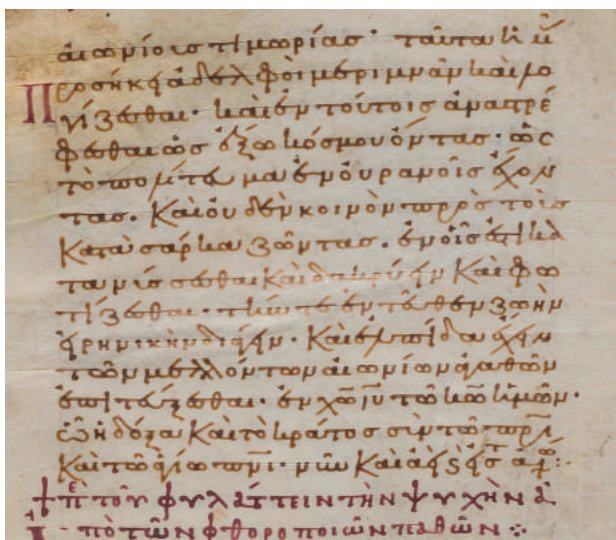 αἰωνίοις τιμωρίας· ταῦτα καὶ
προσῆκεν ἀδελφοὶ μεριμνᾶν καὶ λο
γίζεσθαι· καὶ ἐν τούτοις ἀναστρέ
φεσθαι ὡς ἔξω κόσμου ὄντας· ὡς
τὸ πολίτευμα ἐν οὐρανοῖς ἔχον
τας. Καὶ οὐδὲν κοινὸν πρὸς τοῖς
Κατὰ σάρκα ζῶντας. ἐν οἷς ἔτι κα
τανίσσεσθαι Καὶ δακρύειν Καὶ φω
τίζεσθαι· ἐντεῦθεν ζωὴν
εἰρηνικὴν διάγειν. Καὶ ἐλπίδα ἔχειν
τῶν μελλόντων αἰωνίων ἀγαθῶν
ἐπιτεύξεσθαι. ἐν χῶ ἰῦ τῶ κῶ ἡμῶν·
ὧ ἡ δόξα Καὶ τὸ κράτος σὺν τῶ πρὶ
Καὶ τῶ ἁγίω πνι· νῦν Καὶ ἀεὶ
+ πε τοῦ φυλάττειν τὴν ψυχὴν ἀ
πὸ τῶν φθοροποιῶν παθῶν ⁘